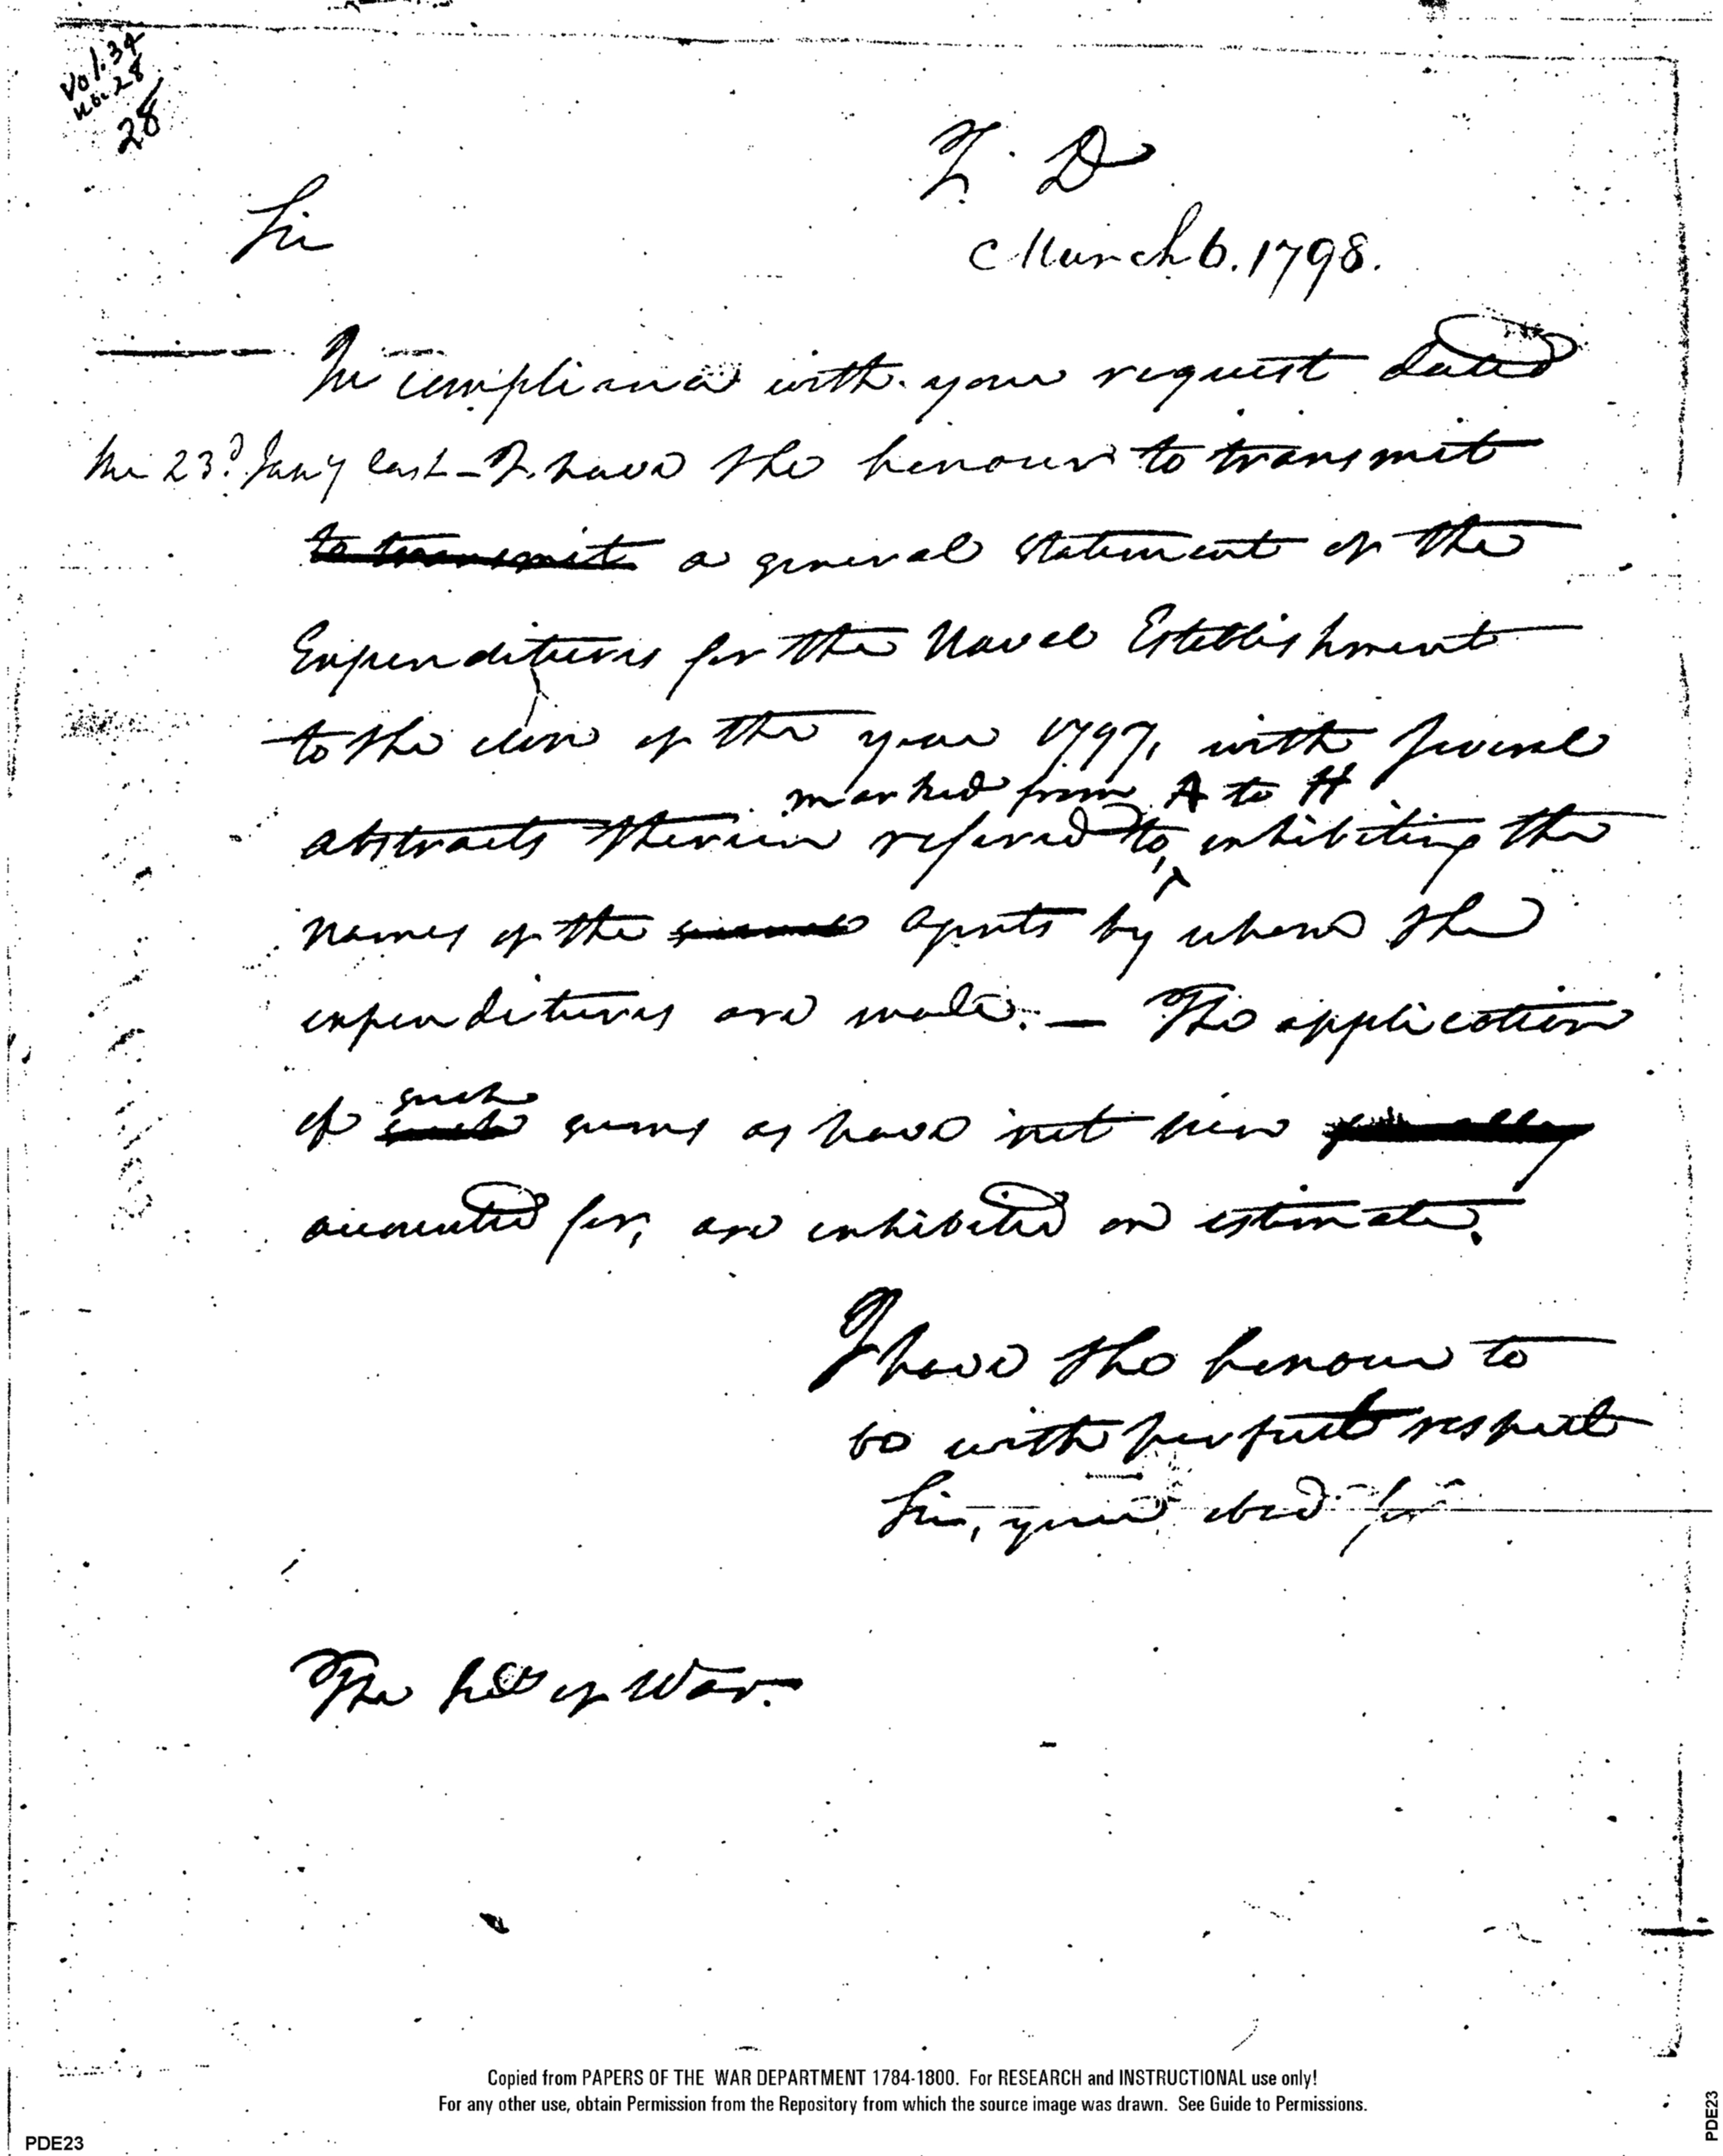 Vol. 34
No. 28
28
T. D
March 6. 1798.
Sir
In compliance with your request dated
the 23d. Jany last - I have the honour to transmit
to transmit a general statement of the
Expenditures for the Naval Establishment
to the close of the year 1797, with several
marked from A to H
abstracts therein refered to, exhibiting the
names of the several agents by whom the
expenditures are made. — The application
such
of such sums as have not been
accounted for, are exhibited on estimate.
I have the honour to
be with perfect respect
Sir, your obed Ser
The Secy of War.
Copied from PAPERS OF THE WAR DEPARTMENT 1784-1800. For RESEARCH and INSTRUCTIONAL use only!
For any other use, obtain Permission from the Repository from which the source image was drawn. See Guide to Permissions.
PDE23
PDE23